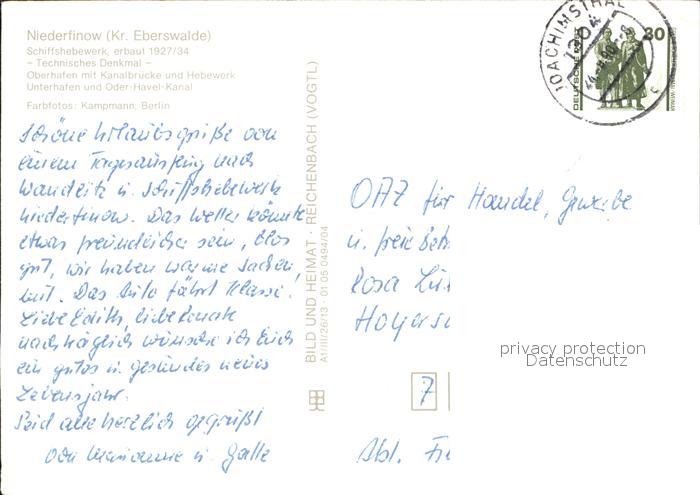 Niederfinow (Kr. Eberswalde)
Schiffshebewerk, erbaut 1927/34
– Technisches Denkmal –
Oberhafen mit Kanalbrücke und Hebewerk
Unterhafen und Oder-Havel-Kanal
Farbfotos: Kampmann, Berlin
Schöne Urlaubsgrüße von
einem Tagesausflug nach
Wandlitz u. Schiffshebewerk
Niederfinow. Das Wetter könnte
etwas freundlicher sein,
gut, wir haben warme Sachen
mit. Das Auto fährt Klasse.
Liebe Edith, liebe Renate
nachträglich wünsche ich Euch
ein gutes u. gesundes neues
Lebensjahr.
Seid alle herzlich gegrüßt
von Marianne u.
BILD UND HEIMAT · REICHENBACH (VOGTL)
A1/III/26/13 · 01 05 0494/04
JOACHIMSTHAL
DEUTSCHE POST
30
für Handel, Gewerbe
u. freie
Rosa
7
Abt.
privacy protection
Datenschutz